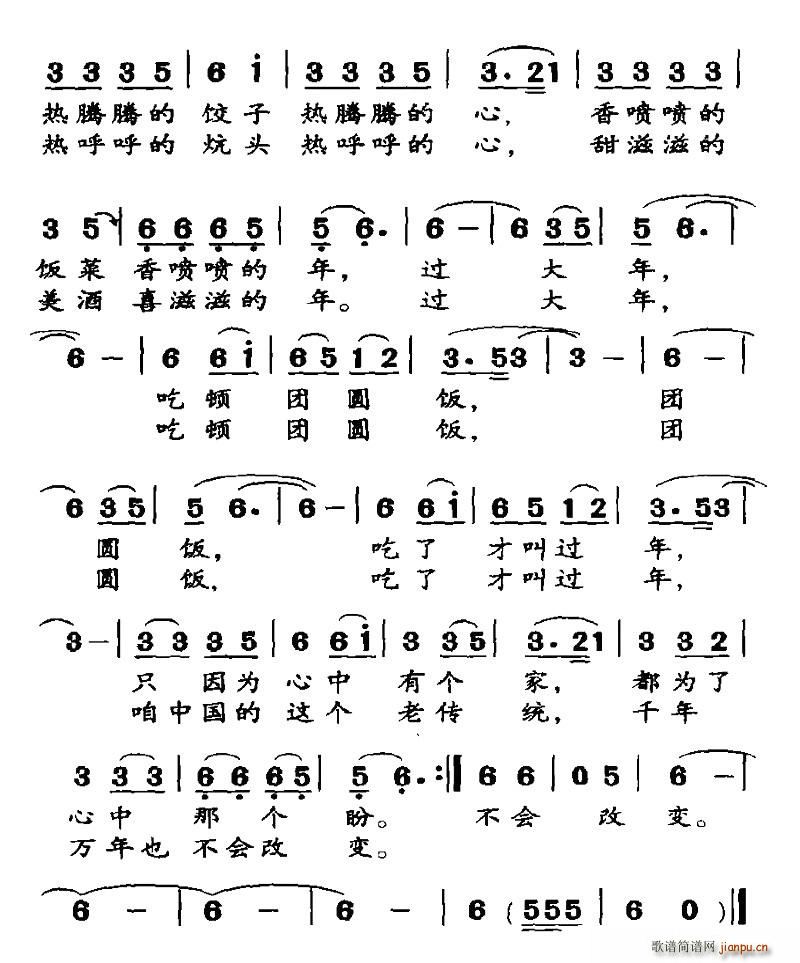 3 3 3 5 | 6 i | 3 3 3 5 | 3. 21 | 3 3 3 3 |
热腾腾的 饺子 热腾腾的 心, 香喷喷的
热呼呼的 炕头 热呼呼的 心, 甜滋滋的
3 5 | 6 6 6 5 | 5 6. | 6 - | 6 35 | 5 6. |
饭菜 香喷喷的 年, 过 大 年,
美酒 喜滋滋的 年。 过 大 年,
6 - | 6 6i | 65 12 | 3. 53 | 3 - | 6 - |
吃 顿 团 圆 饭, 团
吃 顿 团 圆 饭, 团
6 35 | 5 6. | 6 - | 6 6i | 65 12 | 3. 53 |
圆 饭, 吃了 才叫过 年,
圆 饭, 吃了 才叫过 年,
3 - | 33 35 | 6 6i | 3 35 | 3. 21 | 3 32 |
只 因为 心中 有个 家, 都为了
咱中国的 这个 老传 统, 千年
3 33 | 66 65 | 5 6. :| 6 6 | 0 5 | 6 - |
心中 那 个 盼。 不会 改 变。
万年也 不会改 变。
6 - | 6 - | 6 - | 6 (555 | 6 0 )|
歌谱简谱网 jianpu.cn